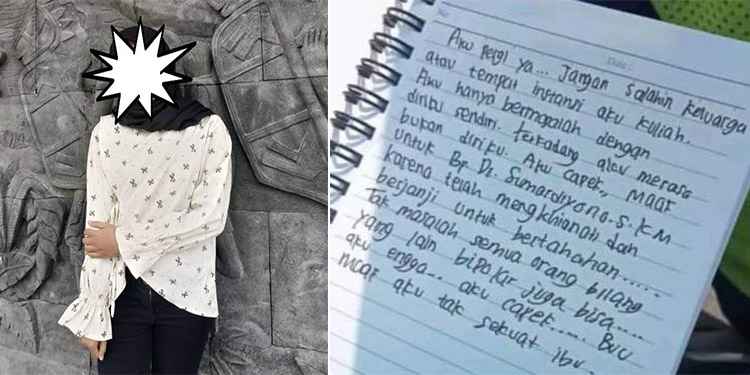 Date :
Aku pergi ya... Jangan salahin keluarga
atau tempat instansi aku kuliah.
Aku hanya bermasalah dengan
diriku sendiri. Terkadang merasa
bukan diriku. Aku capek, maaf
untuk Bp. Dr. Sumardiyono. S. KM
karena telah mengkhianati dan
berjanji untuk bertahahan.....
Tak masalah semua orang bilang
yang lain bipolar juga bisa....
aku engga.. aku capek.... Buu
maaf aku tak sekuat ibu..